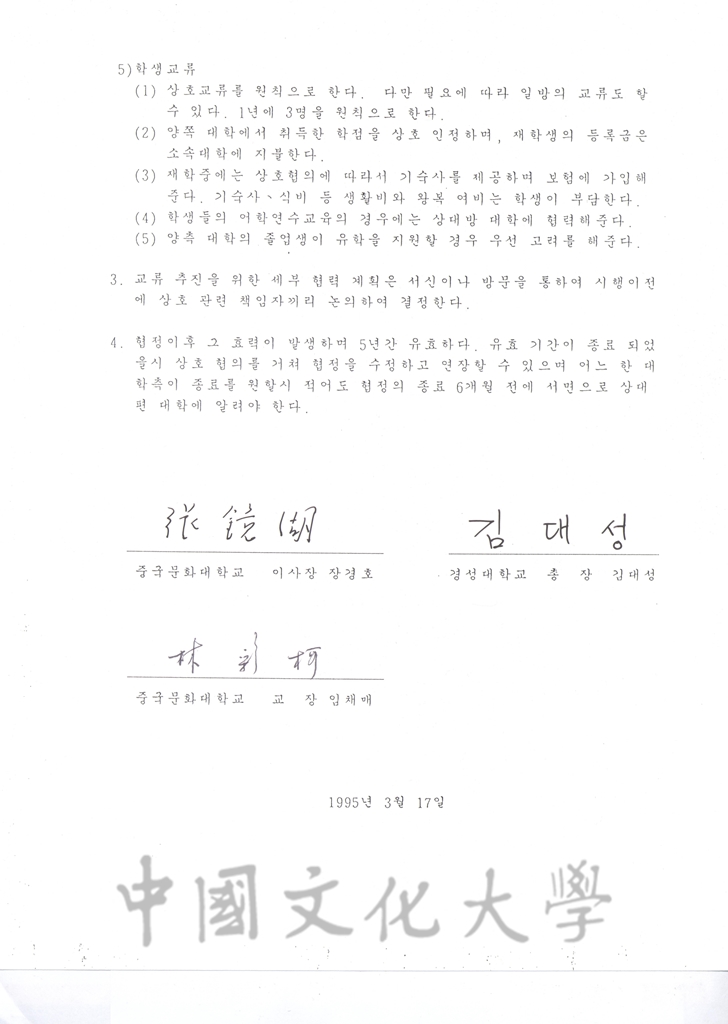 5)학생교류
(1) 상호교류를 원칙으로 한다. 다만 필요에 따라 일방의 교류도 할
수 있다. 1년에 3명을 원칙으로 한다.
(2) 양쪽 대학에서 취득한 학점을 상호 인정하며, 재학생의 등록금은
소속대학에 지불한다.
(3) 재학중에는 상호협의에 따라서 기숙사를 제공하며 보험에 가입해
준다. 기숙사、식비 등 생활비와 왕복 여비는 학생이 부담한다.
(4) 학생들의 어학연수교육의 경우에는 상대방 대학에 협력해준다.
(5) 양측 대학의 졸업생이 유학을 지원할 경우 우선 고려를 해준다.
3. 교류 추진을 위한 세부 협력 계획은 서신이나 방문을 통하여 시행이전
에 상호 관련 책임자끼리 논의하여 결정한다.
4. 협정이후 그 효력이 발생하며 5년간 유효하다. 유효 기간이 종료 되었
을시 상호 협의를 거쳐 협정을 수정하고 연장할 수 있으며 어느 한 대
학측이 종료를 원할시 적어도 협정의 종료 6개월 전에 서면으로 상대
편 대학에 알려야 한다.
張鏡湖 김대성
중국문화대학교 이사장 장경호 경성대학교 총 장 김대성
林彩梅
중국문화대학교 교 장 임채매
1995년 3월 17일
中國文化大學